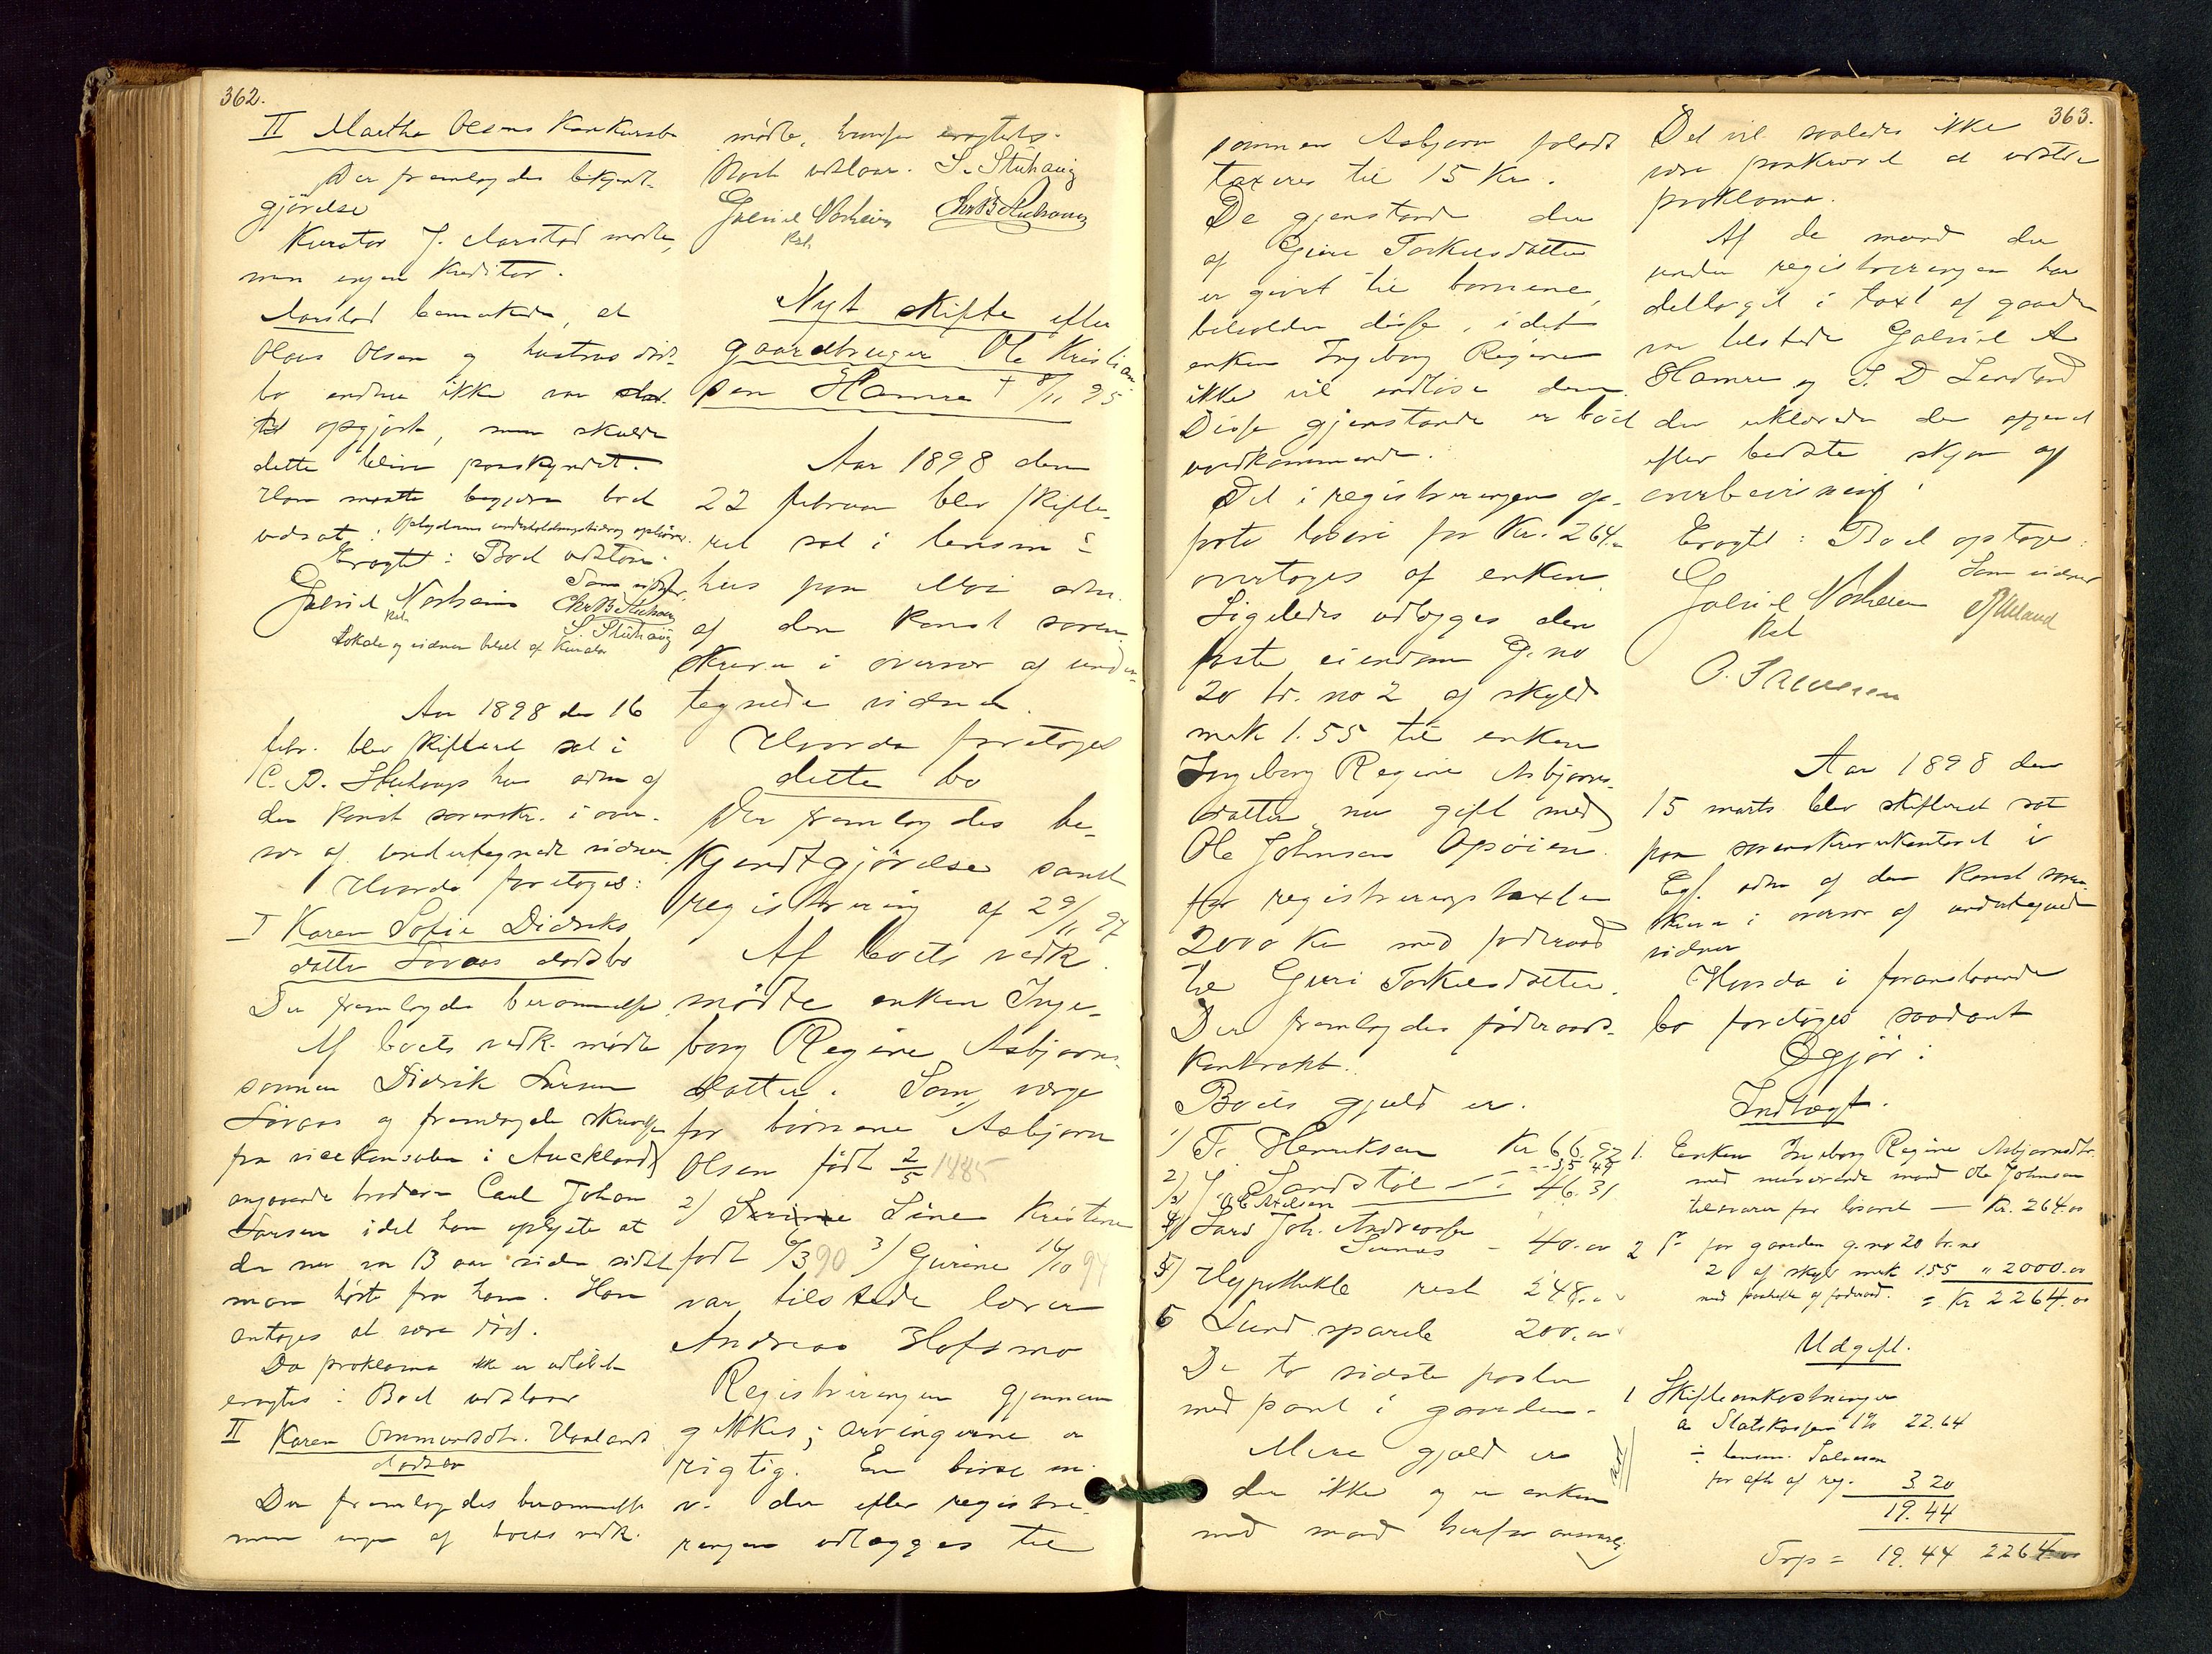 362.
II Marthe Olsens Konkursbo
Der fremlagdes bekjendt-
gjörelse
Kurator J. Aarstad mødte,
men ingen kreditor.
Aarstad bemærkede, at
Olaus Olsen og hustrus döds-
bo endnu ikke var
opgjort, men skulde
dette blive paaskyndet.
Han maatte begjære boet
udsat.
Eragtet: Boet udstaar.
Som vidner
Gabriel Nordheim Chr B Stuhaug
Kst. S. Stuhaug
Lokale og vidner betalt af Kurator
Aar 1898 den 16
febr. blev skifteret sat i
C. B. Stuhaugs hus adm af
den konst sorenskr. i over-
vær af undertegnede vidner.
Hvorda foretoges:
I Karen Sofie Didriks
datter Lövaas dødsbo
Der fremlagdes berammelse.
Af boets vedk. mødte
sønnen Didrik Larsen
Lövaas og fremlagde skrivelse
fra vicekonsulen i Auckland
angaaende broderen Carl Johan
Larsen idet han oplyste at
der nu var 13 aar siden sidst
man hørte fra ham. Han
antages at være död.
Da proklama ikke er udløbet
eragtes: Boet udstaar
II Karen Ommundsdtr. Haalands
dødsbo
Der fremlagdes berammelse
men ingen af boets vedk.
mødte, hvorfor eragtedes.
Boet udstaar. S. Stuhaug
Gabriel Nordheim Chr B Stuhaug
Kst.
Nyt skifte efter
gaardbruger Ole Kristian
sen Hamre † 8/11 95
Aar 1898 den
22 februar blev skifte-
ret sat i lensm
hus paa Moi adm.
af den konst soren
skriver i overvær af under-
tegnede vidner.
Hvorda foretoges
dette bo
Der fremlagdes be-
kjendtgjörelse samt
registrering af 29/11 97
Af boets vedk.
mødte enken Inge-
borg Regine Asbjørns
datter. Som værge
for børnene Asbjørn
Olsen født 2/5 1885
2) Line Kristine
født 6/3 90 3) Gurine 16/10 94
var tilstede lærer
Andreas Hofsmo
Registreringen gjennem
gikkes; arvingerne er
rigtig. En börse m.
v. der efter registre-
ringen udlægges til
363.
sønnen Asbjørn foladt
taxeres til 15 Kr.
De gjenstande der
af Guri Torkelsdatter
er givet til børnene,
beholder disse, idet
enken Ingeborg Regine
ikke vil indløse dem.
Disse gjenstande er boet
uvedkommende.
Det i registreringen op-
førte løsøre for Kr. 264.-
overtages af enken.
Ligeledes udlægges den
faste eiendom G. no
20 br. no 2 af skyld
mark 1.55 til enken
Ingeborg Regine Asbjørns-
datter nu gift med
Ole Johnsen Opsöien
for registreringstaxten
2000 Kr med føderaad
til Guri Torkelsdatter.
Der fremlagdes föderaads-
kontrakt.
Boets gjæld er.
1) Fr. Henriksen Kr 66.92
2) J. Sandstöl - - 35.49
3) O. C. Axelsen 46.31
4) Lars Joh. Andreassen
Lunas - 40.00
5) Hypothekbk rest 248.00
6 Lund sparebk 200.00
De to sidste poster
med pant i gaarden.
Mere gjæld er
der ikke og er enken
med mand herfor ansvarlig
Det vil saaledes ikke
være paakrævet at udstede
proklama.
Af de mænd der
under registreringen har
deltaget i taxt af gaarden
var tilstede Gabriel A
Hamre og T. D Lendland
der erklærede den afgivet
efter bedste skjøn og
overbevisning.
Eragtet: Boet optages.
Som vidner
Gabriel Nordheim
Kst
O. Salvesen
Aar 1898 den
15 marts blev skifteret sat
paa sorenskriverkontoret i
Egs. adm af den konst soren
skriver i overvær af undertegnede
vidner
Hvorda i foranstaaende
bo foretoges saadant
Opgjør:
Indtægt.
1. Enken Ingeborg Regine Asbjørnsdtr.
med nuværende mand Ole Johnsen
tilsvarer for løsøret — Kr. 264.00
2 for gaarden g. no 20 br. no
2 af skyld mark 1.55 " 2000.00
med paahefte af føderaad. = Kr 2264.00
Udgift.
1 Skifteomkostninger
a Statskassen 1% 22.64
÷ lensm. Salvesen
for afh. af reg. 3.20
19.44
Trsp = 19.44 2264.00